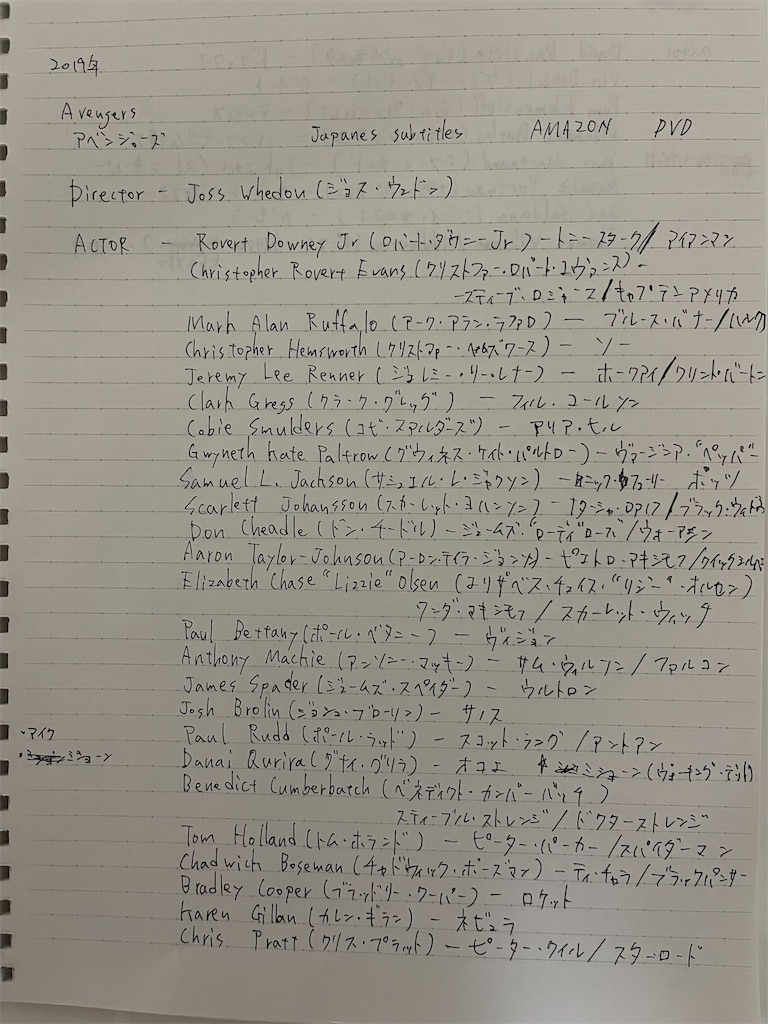 2019年
Avengers
アベンジャーズ Japanes subtitles AMAZON DVD
Director - Joss Whedon (ジョス・ウェドン)
ACTOR - Rovert Downey Jr (ロバート・ダウニーJr) - トニースターク/ アイアンマン
Christopher Rovert Evans (クリストファー・ロバート・エヴァンス) -
- スティーブ・ロジャース/キャプテンアメリカ
Mark Alan Ruffalo (マーク・アラン・ラファロ) - ブルース・バナー/ハルク
Christopher Hemsworth (クリストファー・ヘムズワース) - ソー
Jeremy Lee Renner (ジェレミー・リー・レナー) - ホークアイ/クリント・バートン
Clark Gregs (クラーク・グレッグ) - フィル・コールソン
Cobie Smulders (コビー・スマルダーズ) - マリア・ヒル
Gwyneth Kate Paltrow (グウィネス・ケイト・パルトロー) - ヴァージニア・"ペッパー
Samuel L. Jackson (サミュエル・L・ジャクソン) - ニック・フューリー ポッツ
Scarlett Johansson (スカーレット・ヨハンソン) - ナターシャ・ロマノフ/ブラック・ウィドウ
Don Cheadle (ドン・チードル) - ジェームズ・"ローディ"ローズ/ウォーマシン
Aaron Taylor-Johnson (アーロンテイラ・ジョンソン) - ピエトロ・マキシモフ/クイックシルバー
Elizabeth Chase "Lizzie" Olsen (エリザベス・チェイス・"リジー"・オルセン)
ワンダ・マキシモフ / スカーレット・ウィッチ
Paul Bettany (ポール・ベタニー) - ヴィジョン
Anthony Mackie (アンソニー・マッキー) - サム・ウィルソン / ファルコン
James Spader (ジェームズ・スペイダー) - ウルトロン
Josh Brolin (ジョシュ・ブローリン) - サノス
・マイク Paul Rudd (ポール・ラッド) - スコット・ラング /アントマン
・ミショーン Danai Qurira (ダナイ・グリラ) - オコエ ミショーン (ウォーキング・デッド)
Benedict Cumberbatch (ベネディクト・カンバーバッチ)
スティーブン・ストレンジ / ドクターストレンジ
Tom Holland (トム・ホランド) - ピーター・パーカー /スパイダーマン
Chadwick Boseman (チャドウィック・ボーズマン) - ティ・チャラ/ブラックパンサー
Bradley Cooper (ブラッドリー・クーパー) - ロケット
Karen Gillan (カレン・ギラン) - ネビュラ
Chris Pratt (クリス・プラット) - ピーター・クイル/ スター・ロード